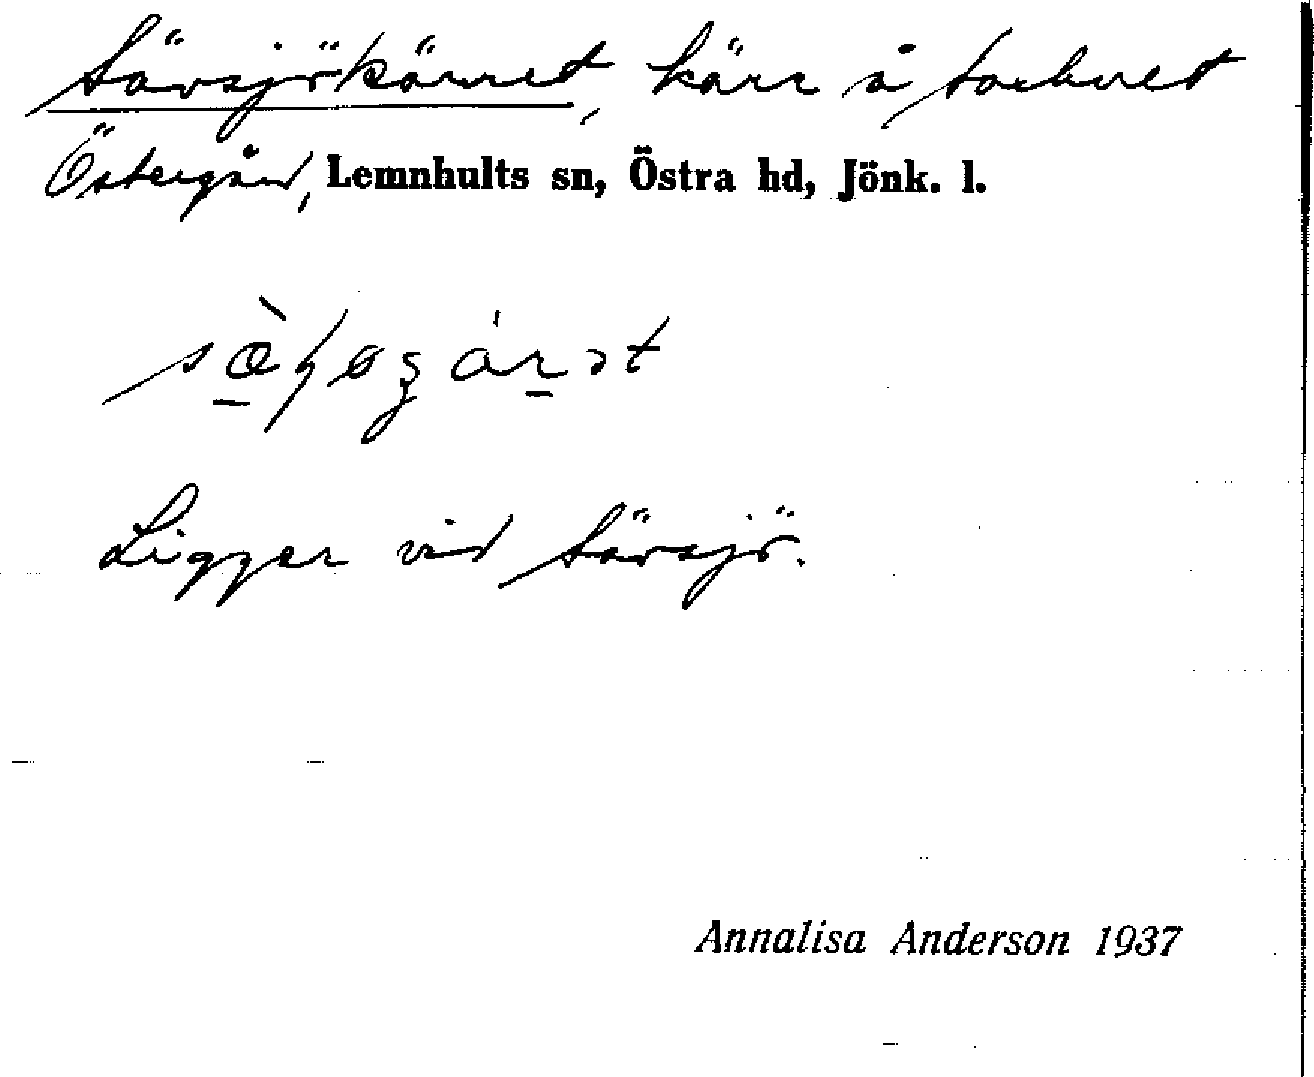 Sävsjökärret, kärr å
Östergård, Lemnhults sn, Östra hd, Jönk. l.
Ligger vid Sävsjö.
Annalisa Anderson 1937